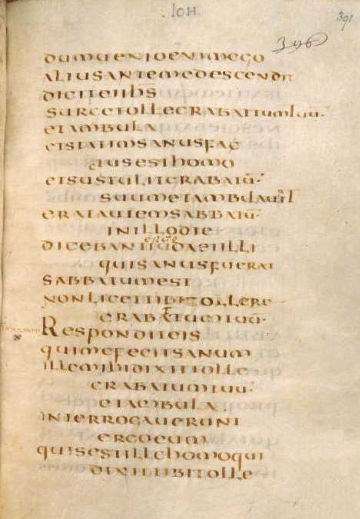 IOH
396
391
dum uenio enim ego
alius ante me descendit
dicit ei ihs
surge tolle grabattum tuu
et ambula
et statim sanus fac
tus est homo
et sustulit grabatū
suum et ambulauit
erat autem sabbatū
in illo die
ergo
dicebant iudaei illi
qui sanus fuerat
sabbatum est
non licet tibi tollere
grabattum tuū
Respondit eis
qui me fecit sanum
ille mihi dixit tolle
grabatum tuū
et ambula
interrogauerunt
ergo eum
quis est ille homo qui
dixit tibi tolle